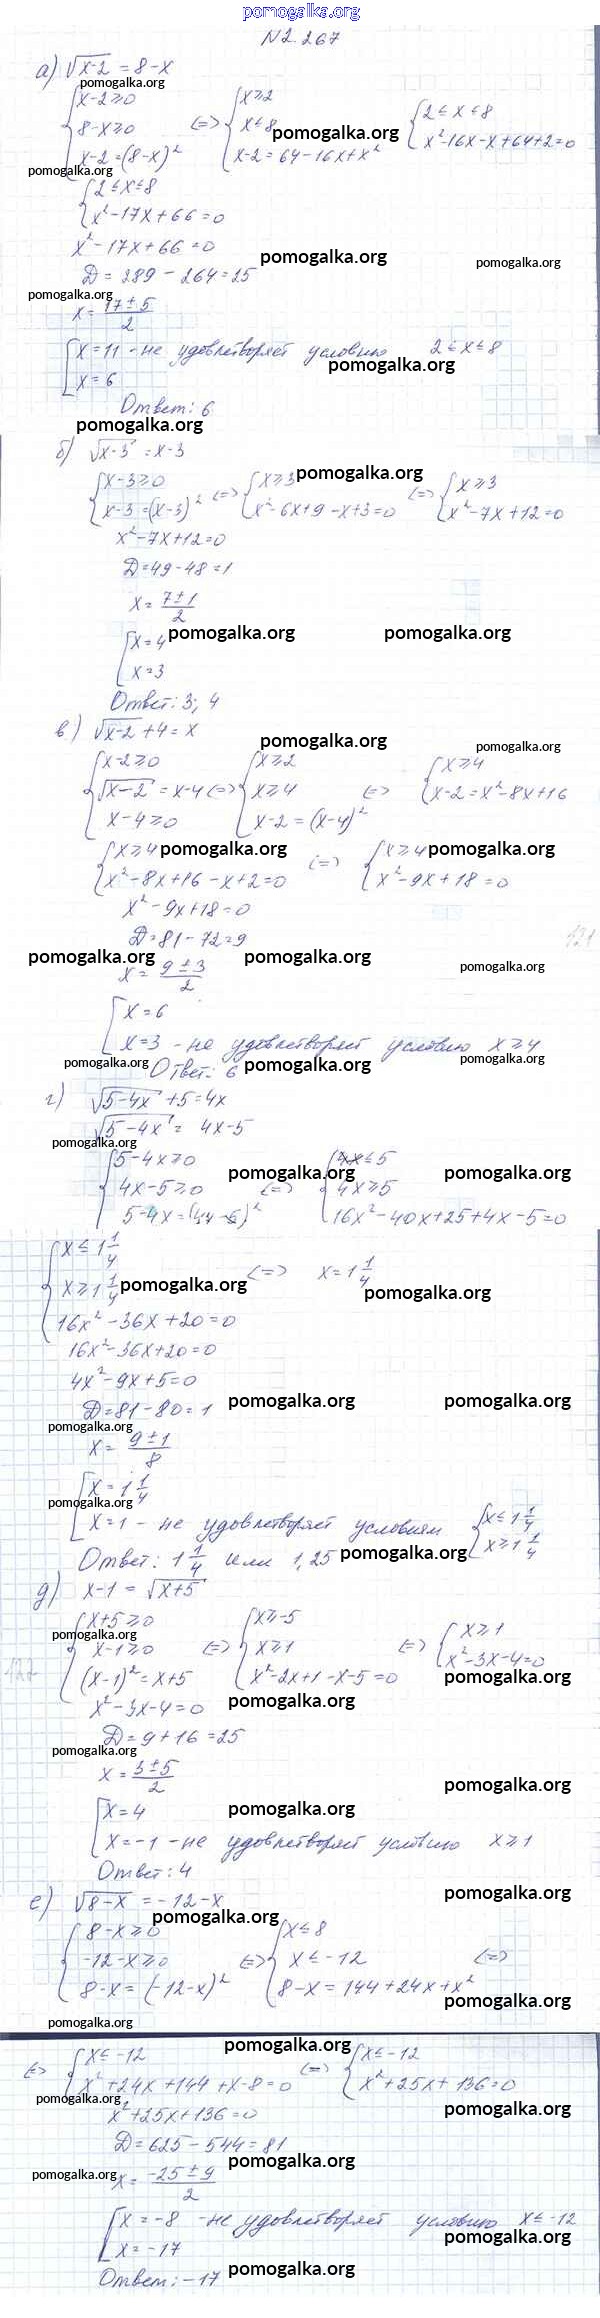 pomogalka.org
N 2.267
а) √(x-2) = 8-x
pomogalka.org
{ x-2≥0
8-x≥0
x-2=(8-x)²
<=> { x≥2
x≤8
x-2=64-16x+x²
pomogalka.org
{ 2≤x≤8
x²-16x-x+64+2=0
pomogalka.org
{ 2≤x≤8
x²-17x+66=0
x²-17x+66=0
pomogalka.org pomogalka.org
D = 289-264=25
pomogalka.org
x = (17±5)/2
[ x=11 - не удовлетворяет условию 2≤x≤8
pomogalka.org
x=6
Ответ: 6
pomogalka.org
б) √(x-3) = x-3
pomogalka.org
{ x-3≥0
x-3=(x-3)²
<=> { x≥3
x²-6x+9-x+3=0
<=> { x≥3
x²-7x+12=0
x²-7x+12=0
D=49-48=1
x = (7±1)/2
[ x=4
pomogalka.org pomogalka.org
x=3
Ответ: 3; 4
в) √(x-2)+4=x
pomogalka.org pomogalka.org
{ x-2≥0
√(x-2)=x-4
x-4≥0
<=> { x≥2
x≥4
x-2=(x-4)²
<=> { x≥4
x-2=x²-8x+16
pomogalka.org pomogalka.org
{ x≥4
x²-8x+16-x+2=0
<=> { x≥4
x²-9x+18=0
x²-9x+18=0
D=81-72=9
pomogalka.org pomogalka.org pomogalka.org
x = (9±3)/2
[ x=6
x=3 - не удовлетворяет условию x≥4
pomogalka.org pomogalka.org pomogalka.org
Ответ: 6
г) √(5-4x)+5=4x
√(5-4x) = 4x-5
pomogalka.org
{ 5-4x≥0
4x-5≥0
5-4x=(4x-5)²
pomogalka.org pomogalka.org
<=> { 4x≤5
4x≥5
16x²-40x+25+4x-5=0
{ x≤1 1/4
x≥1 1/4
16x²-36x+20=0
pomogalka.org
<=> x=1 1/4
pomogalka.org
16x²-36x+20=0
4x²-9x+5=0
pomogalka.org pomogalka.org
D=81-80=1
pomogalka.org
x = (9±1)/8
[ x=1 1/4
pomogalka.org
x=1 - не удовлетворяет условиям { x≤1 1/4
x≥1 1/4
Ответ: 1 1/4 или 1,25
pomogalka.org
д) x-1 = √(x+5)
{ x+5≥0
x-1≥0
(x-1)²=x+5
<=> { x≥-5
x≥1
x²-2x+1-x-5=0
<=> { x≥1
x²-3x-4=0
pomogalka.org
pomogalka.org
x²-3x-4=0
D=9+16=25
pomogalka.org
x = (3±5)/2
pomogalka.org
[ x=4
pomogalka.org
x=-1 - не удовлетворяет условию x≥1
Ответ: 4
pomogalka.org
е) √(8-x) = -12-x
pomogalka.org
{ 8-x≥0
-12-x≥0
8-x=(-12-x)²
<=> { x≤8
x≤-12
8-x=144+24x+x²
<=>
pomogalka.org
pomogalka.org
pomogalka.org
<=> { x≤-12
x²+24x+144+x-8=0
<=> { x≤-12
x²+25x+136=0
pomogalka.org pomogalka.org
x²+25x+136=0
D=625-544=81
pomogalka.org
pomogalka.org
x = (-25±9)/2
[ x=-8 - не удовлетворяет условию x≤-12
pomogalka.org
x=-17
pomogalka.org
Ответ: -17